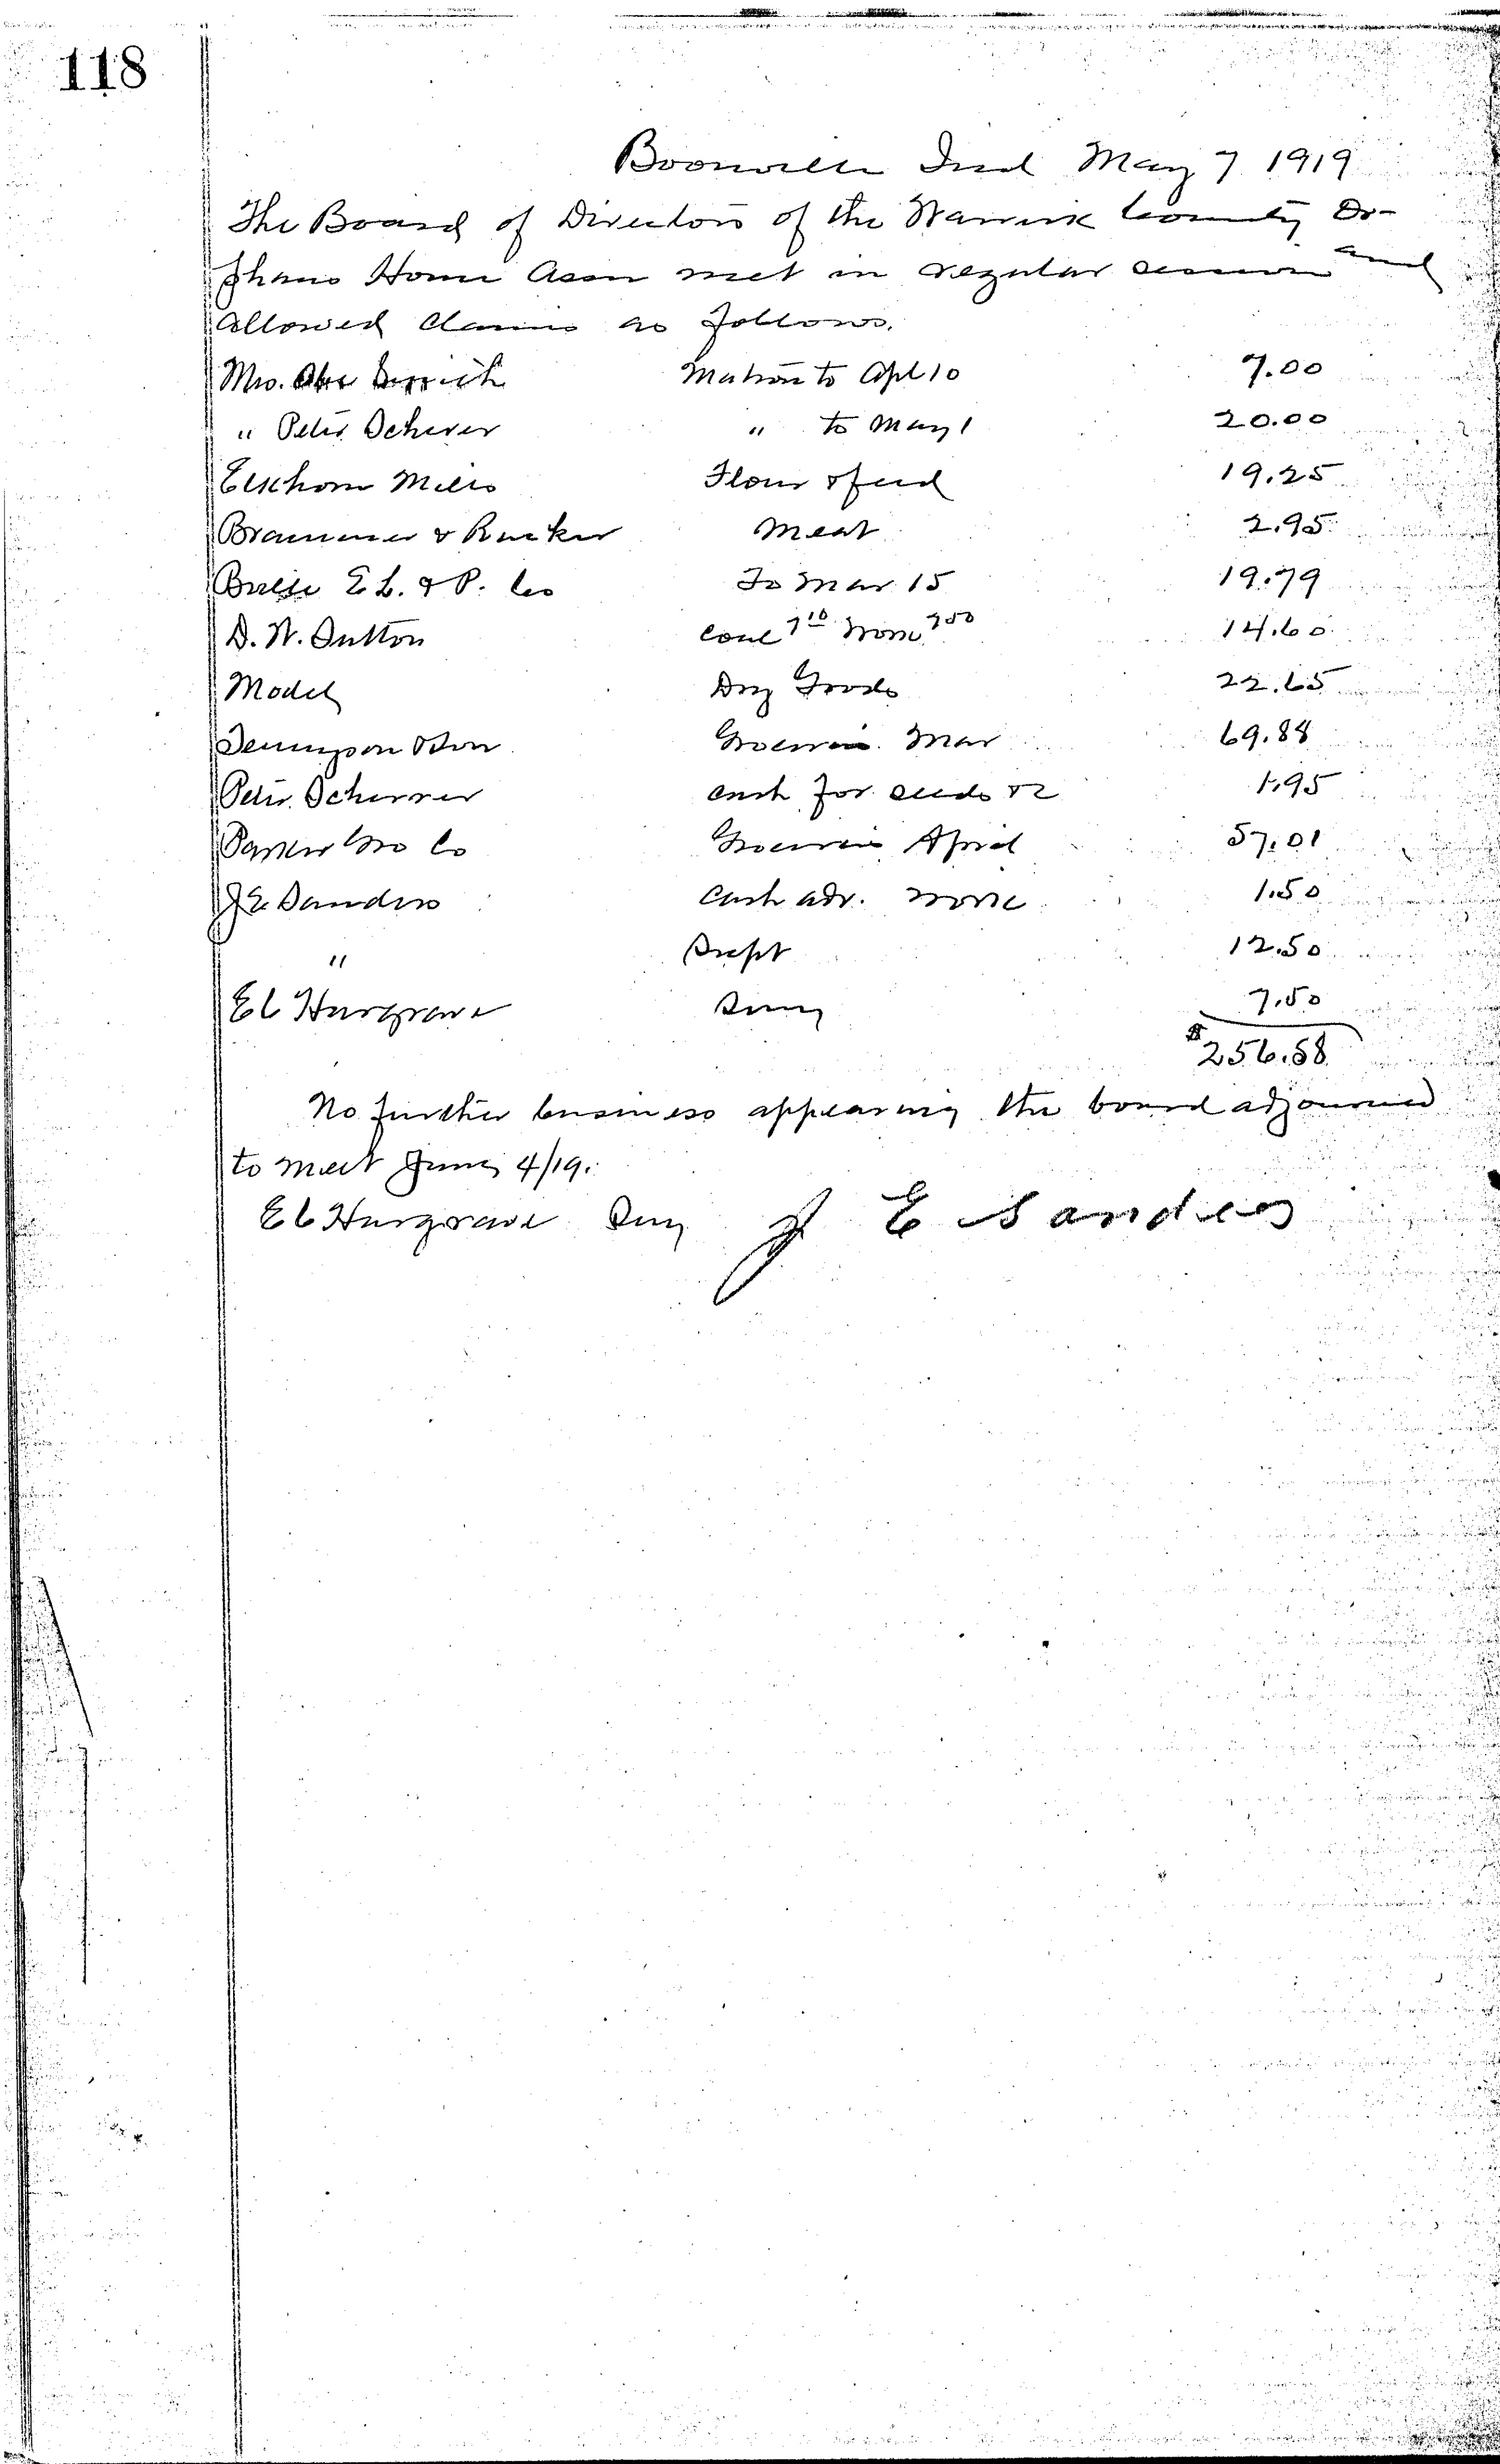 118
Boonville Ind May 7 1919
The Board of Directors of the Warrick County Or-
phans Home Assn met in regular session and
allowed claims as follows.
Mrs. Abe Matron to Apl 10 7.00
" Peter Scherer " to May 1 20.00
Elkhorn Mills Flour & feed 19.25
Brammer & Rucker Meat 2.95
E L. & P. Co To Mar 15 19.79
D. W. Sutton Coal 7 10 work 7 50 14.60
Model Dry Goods 22.65
Tennyson & Son Groceries Mar 69.88
Peter Scherrer Cash for seeds &c 1.95
Parker Gro Co Groceries April 57.01
J E Sanders Cash adv. work 1.50
" Supt 12.50
E C Hargrave Secy 7.50
$256.58
No further business appearing the board adjourned
to meet June 4/19.
E C Hargrave Secy J E Sanders